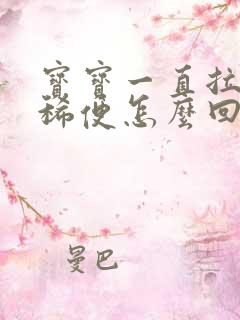 寶寶一直拉
稀便怎麼回
曼巴